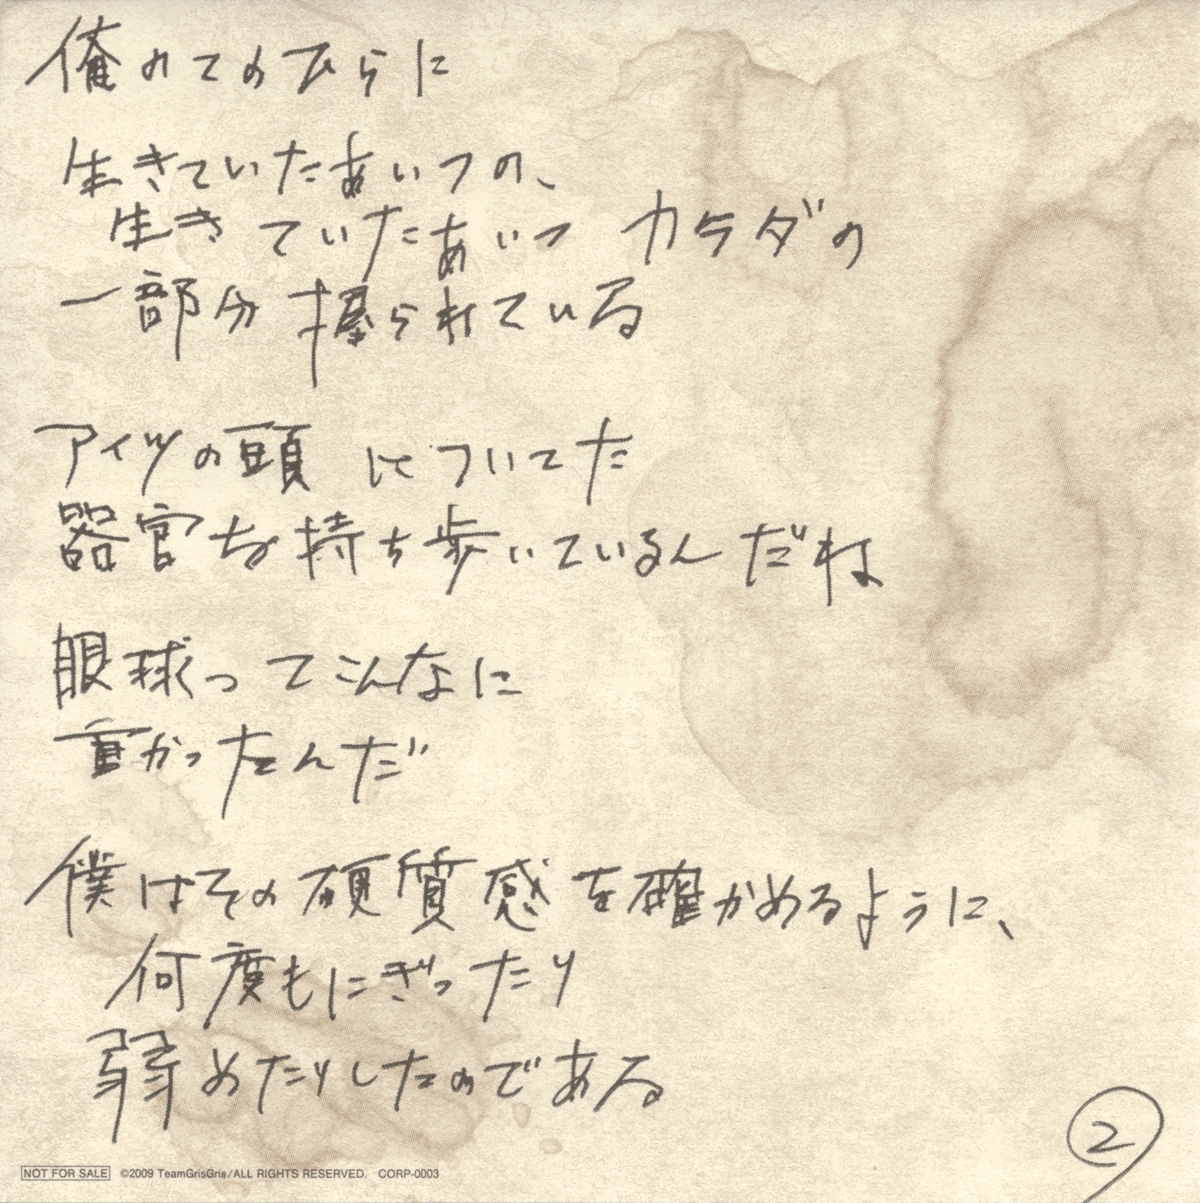 俺のてのひらに
生きていたあいつの、
生きていたあいつ カラダの
一部分 握られている
アイツの頭 についてた
器官を持ち歩いているんだね
眼球ってこんなに
重かったんだ
僕はその硬質感を確かめるように、
何度もにぎったり
弱めたりしたのである
2
NOT FOR SALE ©2009 TeamGrisGris/ALL RIGHTS RESERVED. CORP-0003